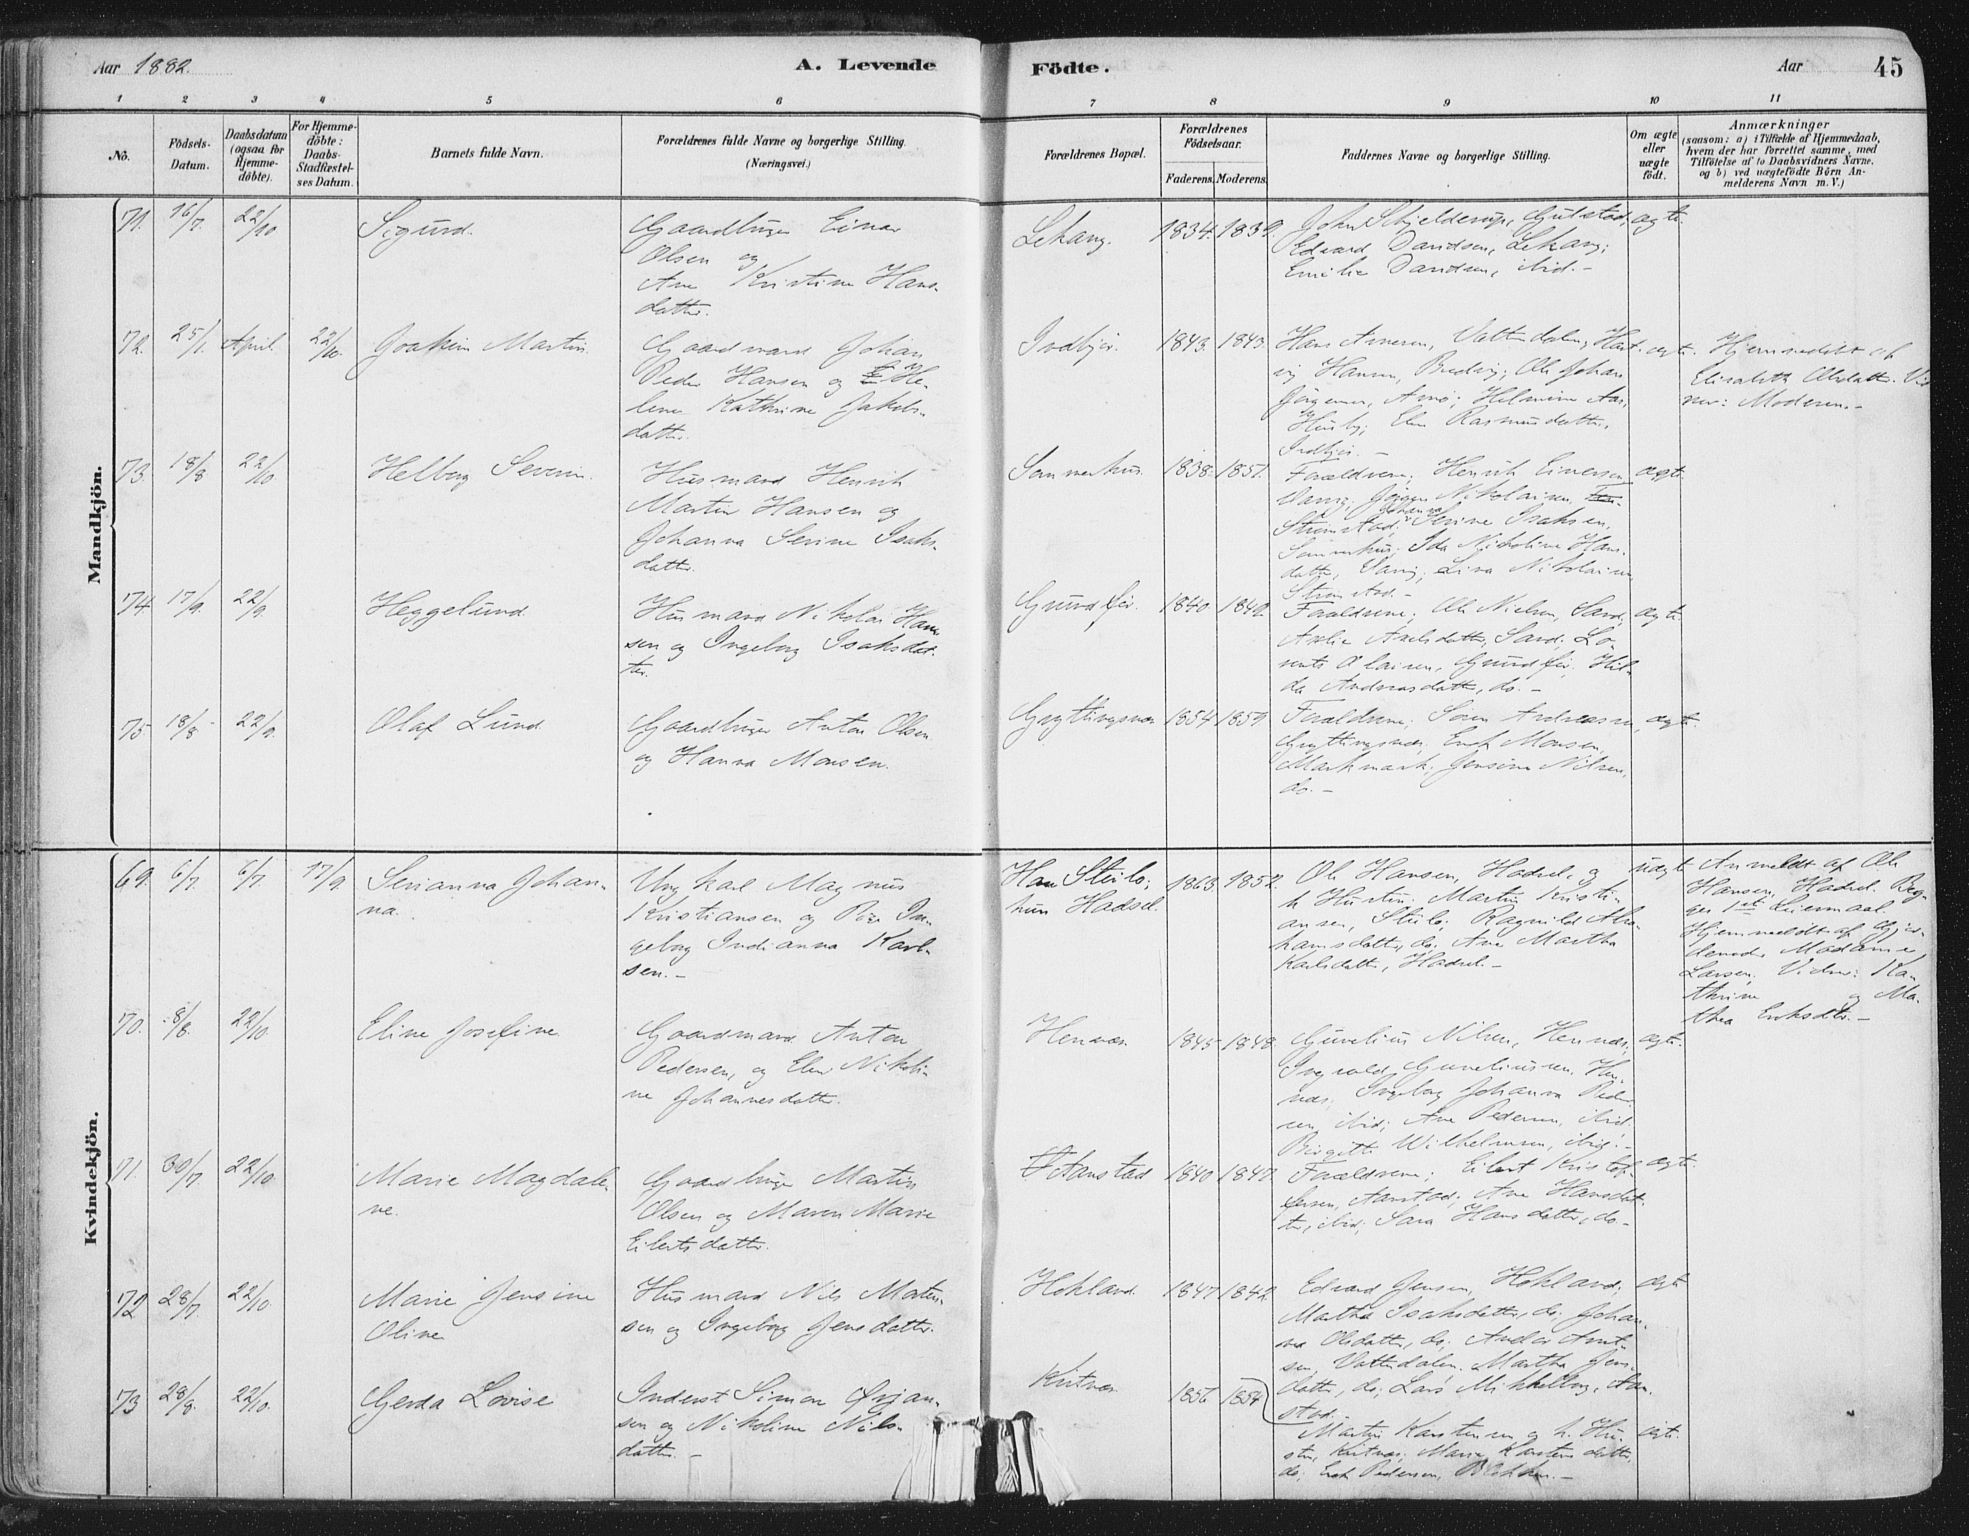 Aar 1882.
A. Levende
Födte.
Aar
45
1 2 3 4 5 6 7 8 9 10 11
No.
Födsels-
Datum.
Daabsdatum
(ogsaa for
Hjemme-
döbte).
For Hjemme-
döbte:
Daabs-
Stadfæstel-
ses Datum.
Barnets fulde Navn.
Forældrenes fulde Navne og borgerlige Stilling.
(Næringsvei.)
Forældrenes Bopæl.
Forældrenes
Födselsaar.
Faderens. Moderens.
Faddernes Navne og borgerlige Stilling.
Om ægte
eller
uægte
født.
Anmærkninger
(saasom: a) i Tilfælde af Hjemmedaab,
hvem der har forrettet samme, med
Tilföielse af to Daabsvidners Navne,
og b) ved uægtefödte Börn An-
melderens Navn m. V.)
Mandkjön.
71. 16/7. 22/10 Sigurd.
Gaardbruger Einar
Olsen og
Ane Kristine Hans-
datter.
Lekang. 1834. 1839.
John Schjelderup, Gulstad,
Edvard Davidsen, Lekang;
Emilie Davidsen, ibid.-
ægte.
72. 25/1. April. 22/10. Joakim Martin
Gaardmand Johan
Peder Hansen og He-
lene Kathrine Jakobs-
datter.
Indbjor. 1843. 1843.
Hans Arnesen, Vatterdalen, Hart-
vig Hansen, Bredvig; Ole Johan
Jörgensen, Arnö; Helmine Aas,
Husby; Elen Rasmusdatter,
Indbjor. -
ægte.
Hjemmedöbt af
Elisabeth Olsdatter. Vid-
ner: Moderen.-
73. 18/8 22/10 Helberg Severin.
Husmand Henrik
Martin Hansen og
Johanna Serine Isaks-
datter.
Sommerhus. 1838. 1851.
Forældrene; Henrik Einersen,
Vang; Jörgen Nikolaisen,
Strömstad; Johanna Serine Isaksen,
Sommerhus; Ida Nicholine Hans-
datter, Vang; Lina Nikolaisen
Strömstad. -
ægte.
74. 17/9. 22/9. Heggelund
Husmand Nikolai Han-
sen og Ingeborg Isaksdat-
ter.
Grundfør. 1840. 1840.
Forældrene; Ole Nielsen, Sand,
Axelie Axelsdatter, Sand; Lo-
rents Olaisen, Grundfør, Hil-
da Andreasdatter, do. -
ægte.
75. 18/8 22/9. Olaf Lund
Gaardbruger Anton Olsen
og Hanna Monsen.
Grytingsnes 1854 1859.
Forældrene; Sören Andreassen,
Grytingsnes, Erik Monsen,
Markmark; Jensine Nilsen,
do. -
ægte.
Kvindekjön.
69. 6/7. 6/7. 17/9. Serianna Johan-
na.
Ungkarl Magnus
Kristiansen og Pige In-
geborg Indianna Karl-
sen. -
Han Steilo;
hun Hadsel.
1863. 1852.
Ole Hansen, Hadsel, og
h. Hustru. Martin Kristi-
ansen, Steilo; Ragnild Abra-
hamsdatter, do. Ane Martha
Karlsdatter, Hadsel. -
uægt.
Anmeldt af Ole
Hansen, Hadsel. Beg-
ges 1ste Leiermaal.
Hjemmedöbt af Gjor-
demoder Madame
Larsen. Vidner: Ka-
thrine og Ma-
thea Eriksdtr. -
70. 8/8. 22/10. Eline Josefine
Gaardmand Anton
Pedersen, og Elen Nikoli-
ne Johannesdatter.
Hennes 1845 1848.
Gunelius Nilsen, Hennes;
Ingvald Guneliussen, Hen-
nes; Ingeborg Johanna Peder-
sen, ibid; Ane Pedersen, ibid.
Birgitte Wilhelmsen, ibid. -
ægte.
71. 30/7. 22/10. Marie Magdale-
ne.
Gaardbruger Martin
Olsen og Maren Marie
Eilertsdatter.
Aanstad 1840 1847.
Forældrene; Eilert Kristof-
fersen, Aanstad; Ane Hansdat-
ter, ibid; Sara Hansdatter, do -
ægte.
72 28/7. 22/10. Marie Jensine
Oline
Husmand Nils Morten-
sen og Ingeborg Jensdatter.
Hokland. 1847 1842.
Edvard Jensen, Hokland;
Martha Isaksdatter, do; Johan-
na Olsdatter, do; Andor Arnt-
sen, Vatterdalen. Martha Jens-
datter, do; Lars Mikkelborg, Aan-
stad. -
ægt.
73 28/8. 22/10. Gerda Lovise
Inderst Simon Ørjan-
sen og Nikoline Nils-
datter. -
Kvitnes 1856 1854
Martin Karstensen og h. Hu-
stru, Kvitnes; Marie Karstensdatter,
do; Erik Pedersen, Blokken. -
ægte.